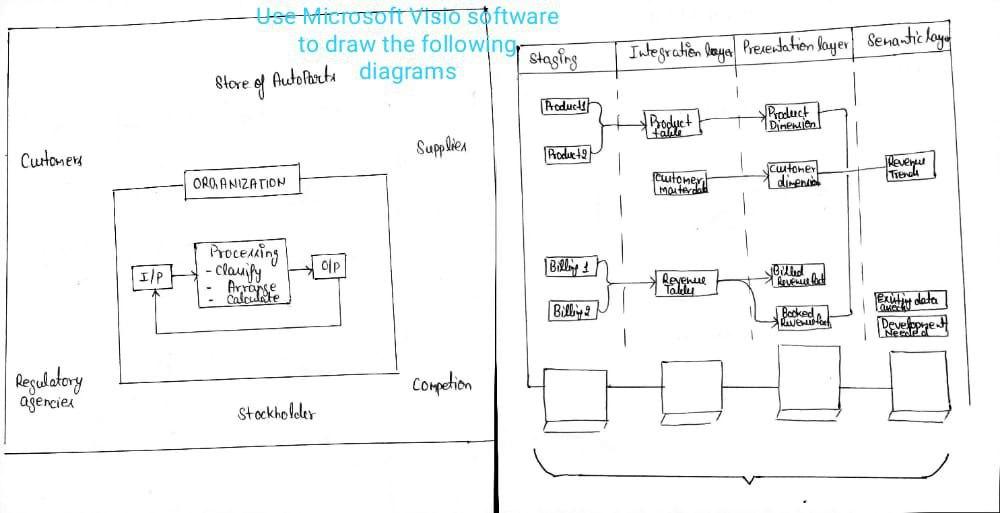 Use Microsoft Visio software
to draw the following
diagrams
Store of AutoParts
Customers
Supplies
ORGANIZATION
I/P
Processing
- Clasify
- Arrange
- Calculate
O/P
Regulatory
agencies
Competion
Stockholder
Staging
Integration layer
Presentation layer
Semantic layer
Product1
Product2
Product
table
Product
Dimension
Customer
masterdata
Customer
dimension
Revenue
Trends
Billing 1
Billing 2
Revenue
Tables
Billed
Revenue fact
Booked
Revenue fact
Existing data
Development
Needed